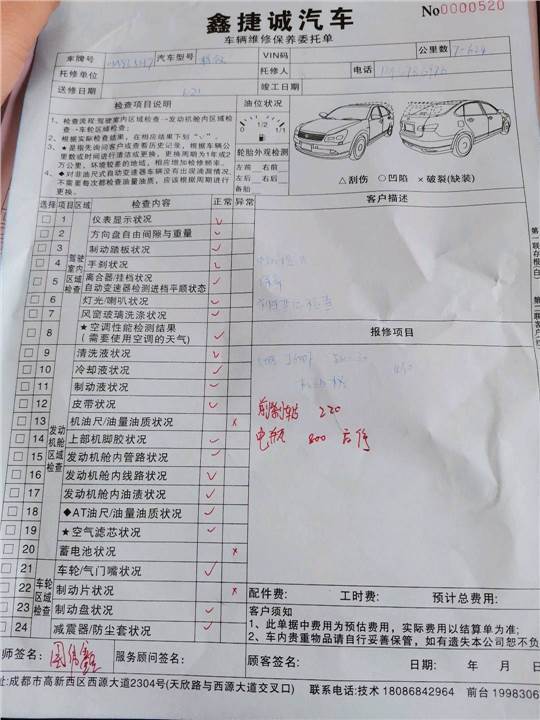 鑫捷诚汽车
No0000520
车辆维修保养委托单
车牌号 汽车型号 VIN码 公里数
托修单位 托修人 电话
送修日期 竣工日期
检查项目说明 油位状况
1、检查流程:驾驶室内区域检查→发动机舱内区域检查→车轮区域检查;
2、根据实际检查结果,在相应结果下划"✓"。
3、★是指先询问客户或查看历史记录,根据车辆公
里数或时间进行清洁或更换,更换周期为1年或2
万公里,环境较差的地域,相应增加检修频率。
4、◆对非油尺式自动变速器车辆没有出现滴漏情况,
不需要每次都检查油量油质,应该根据周期进行
更换。
0 1/2 1/1
轮胎外观检测
左前 右前
左后 右后
备胎
△刮伤 ○凹陷 ×破裂(缺装)
客户描述
选择 项目 区域 检查内容 正常 异常
驾驶室内区域检查
1 仪表显示状况 ✓
2 方向盘自由间隙与重量 ✓
3 制动踏板状况 ✓
4 手刹状况 ✓
5 离合器/挂档状况
自动变速器检测进档平顺状态 ✓
6 灯光/喇叭状况 ✓
7 风窗玻璃洗涤状况 ✓
8 ★空调性能检测结果
(需要使用空调的天气) ✓
报修项目
发动机舱区域检查
9 清洗液状况 ✓
10 冷却液状况 ✓
11 制动液状况 ✓
12 皮带状况 ✓
13 机油尺/油量油质状况 ×
14 上部机脚胶状况 ✓
15 发动机舱内管路状况 ✓
16 发动机舱内线路状况 ✓
17 发动机舱内油渍状况 ✓
18 ◆AT油尺/油量油质状况 ✓
19 ★空气滤芯状况 ✓
20 蓄电池状况 ×
220
电瓶 800
车轮区域检查
21 车轮/气门嘴状况 ✓
22 制动片状况 ×
23 制动盘状况 ✓
24 减震器/防尘套状况 ✓
配件费: 工时费: 预计总费用:
客户须知
1、此单据中费用为预估费用,实际费用以结算单为准;
2、车内贵重物品请自行妥善保管,如有遗失本公司恕不负
师签名: 服务顾问签名: 顾客签名: 日期: 年 月 日
址:成都市高新西区西源大道2304号(天欣路与西源大道交叉口) 联系电话:技术 18086842964 前台 1998306